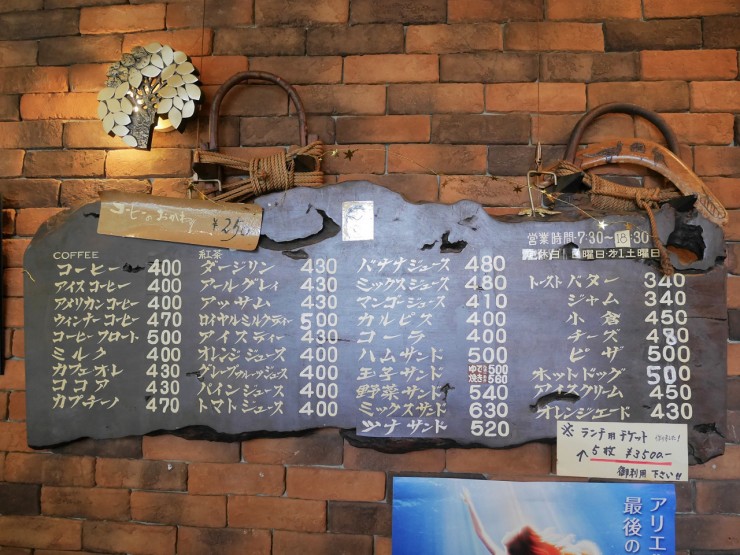 コーヒーのおかわり
¥250
営業時間・7:30〜18:30
定休日 日曜日・第1土曜日
COFFEE
コーヒー 400
アイスコーヒー 400
アメリカンコーヒー 400
ウィンナーコーヒー 470
コーヒーフロート 500
ミルク 400
カフェオレ 430
ココア 430
カプチーノ 470
紅茶
ダージリン 430
アールグレイ 430
アッサム 430
ロイヤルミルクティー 500
アイスティー 430
オレンジジュース 400
グレープフルーツジュース 400
パインジュース 400
トマトジュース 400
バナナジュース 480
ミックスジュース 480
マンゴージュース 410
カルピス 400
コーラ 400
ハムサンド 500
玉子サンド ゆで 500
焼き 560
野菜サンド 540
ミックスサンド 630
ツナサンド 520
トースト バター 340
ジャム 340
小倉 450
チーズ 480
ピザ 500
ホットドッグ 500
アイスクリーム 450
オレンジエード 430
※ ランチ用チケット
↑5枚 ¥3500-
御利用下さい!!
アリエ
最後の